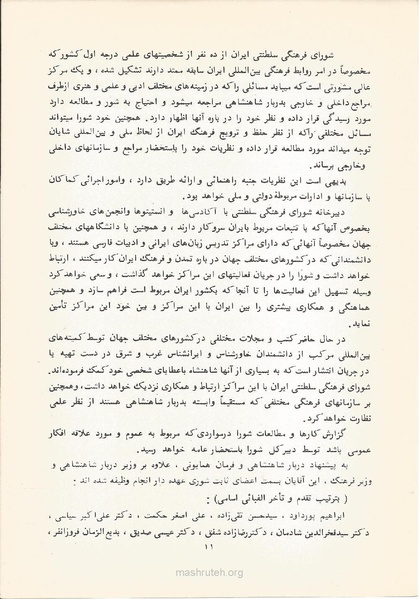 شورای فرهنگی سلطنتی ایران از ده نفر از شخصیتهای علمی درجه اول کشور که
مخصوصاً در امر روابط فرهنگی بین‌المللی ایران سابقه ممتد دارند تشکیل شده ، و یک مرکز
عالی مشورتی است که میباید مسائلی را که در زمینه‌های مختلف ادبی و علمی و هنری از طرف
مراجع داخلی و خارجی بدربار شاهنشاهی مراجعه میشود و احتیاج به شور و مطالعه دارد
مورد رسیدگی قرار داده و نظر خود را در باره آنها اظهار دارد . همچنین خود شورا میتواند
مسائل مختلفی را که از نظر حفظ و ترویج فرهنگ ایران از لحاظ ملی و بین‌المللی شایان
توجه میداند مورد مطالعه قرار داده و نظریات خود را باستحضار مراجع و سازمانهای داخلی
وخارجی برساند.
بدیهی است این نظریات جنبه راهنمائی و ارائه طریق دارد ، وامور اجرائی کماکان
با سازمانها و ادارات مربوطهٔ دولتی و ملی خواهد بود.
دبیرخانه شورای فرهنگی سلطنتی با آکادمی‌ها و انستیتوها وانجمن‌های خاورشناسی
بخصوص آنها که با تتبعات مربوط بایران سروکار دارند ، و همچنین با دانشگاههای مختلف
جهان مخصوصاً آنهائی که دارای مراکز تدریس زبان‌های ایرانی و ادبیات فارسی هستند ، وبا
دانشمندانی که در کشورهای مختلف جهان در باره تمدن و فرهنگ ایران کار میکنند ، ارتباط
خواهد داشت و شورا را در جریان فعالیتهای این مراکز خواهد گذاشت ، و سعی خواهد کرد
وسیله تسهیل این فعالیت‌ها را تا آنجا که بکشور ایران مربوط است فراهم سازد و همچنین
هماهنگی و همکاری بیشتری را بین ایران با این مراکز و بین خود این مراکز تأمین
نماید.
در حال حاضر کتب و مجلات مختلفی در کشورهای مختلف جهان توسط کمیته‌های
بین‌المللی مرکب از دانشمندان خاورشناس و ایرانشناس غرب و شرق در دست تهیه یا
در جریان انتشار است که به بسیاری از آنها شاهنشاه باعطایای شخصی خود کمک فرموده‌اند.
شورای فرهنگی سلطنتی ایران با این مراکز ارتباط و همکاری نزدیک خواهد داشت، وهمچنین
بر سازمانهای فرهنگی مختلفی که مستقیماً وابسته بدربار شاهنشاهی هستند از نظر علمی
نظارت خواهد کرد.
گزارش کارها و مطالعات شورا در مواردی که مربوط به عموم و مورد علاقه افکار
عمومی باشد توسط دبیر کل شورا باستحضار عامه خواهد رسید.
به پیشنهاد دربار شاهنشاهی و فرمان همایونی ، علاوه بر وزیر دربار شاهنشاهی و
وزیر فرهنگ ، این آقایان بسمت اعضای ثابت شوری عهده دار انجام وظیفه شده اند :
( بترتیب تقدم و تأخر الفبائی اسامی ) :
ابراهیم پورداود ، سیدحسن تقی‌زاده ، علی اصغر حکمت ، دکتر علی‌اکبر سیاسی ،
دکتر سیدفخرالدین شادمان ، دکتر رضازاده شفق ، دکتر عیسی صدیق ، بدیع الزمان فروزانفر ،
۱۱
mashruteh.org